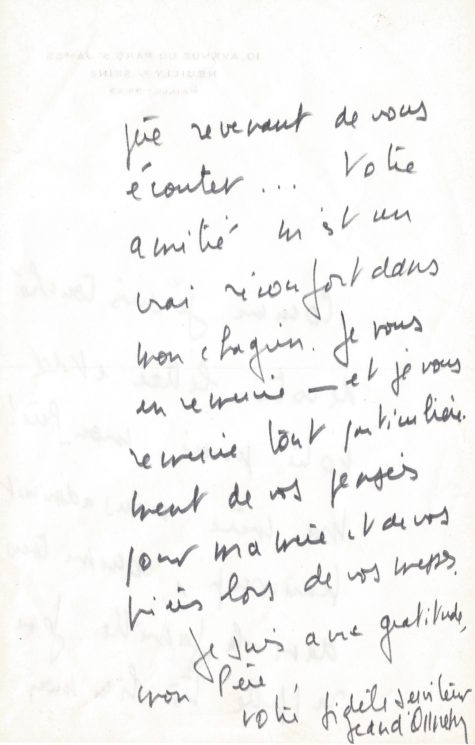 que revenant de vous
écouter... Votre
amitié m'est un
vrai réconfort dans
mon chagrin. Je vous
en remercie — et je vous
remercie tout particulière-
ment de vos pensées
pour ma mère et de vos
prières lors de vos messes.
Je suis avec gratitude,
mon Père
votre fidèle serviteur
Jean d'Ormesson